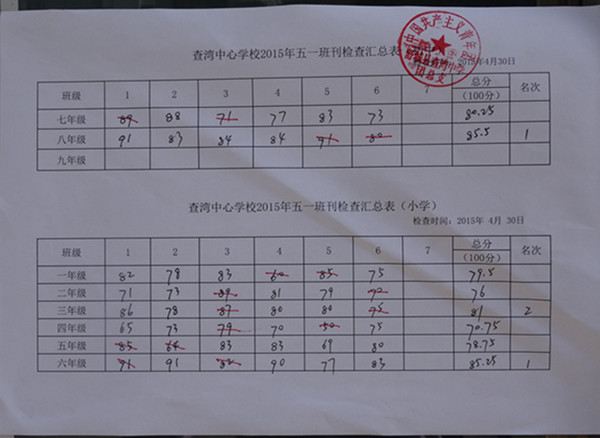 查湾中心学校2015年五一班刊检查汇总表
2015年4月30日
中国共产主义青年团
查湾中学
团总支
班级 1 2 3 4 5 6 7 总分(100分) 名次
七年级 89 88 71 77 83 73 80.25
八年级 91 83 84 84 91 80 85.5 1
九年级
查湾中心学校2015年五一班刊检查汇总表(小学)
检查时间:2015年 4月 30日
班级 1 2 3 4 5 6 7 总分(100分) 名次
一年级 82 78 83 60 85 75 79.5
二年级 71 73 89 81 79 70 76
三年级 86 78 87 80 80 75 81 2
四年级 65 73 79 70 50 75 70.75
五年级 85 64 83 83 69 80 78.75
六年级 91 91 52 90 77 83 85.25 1